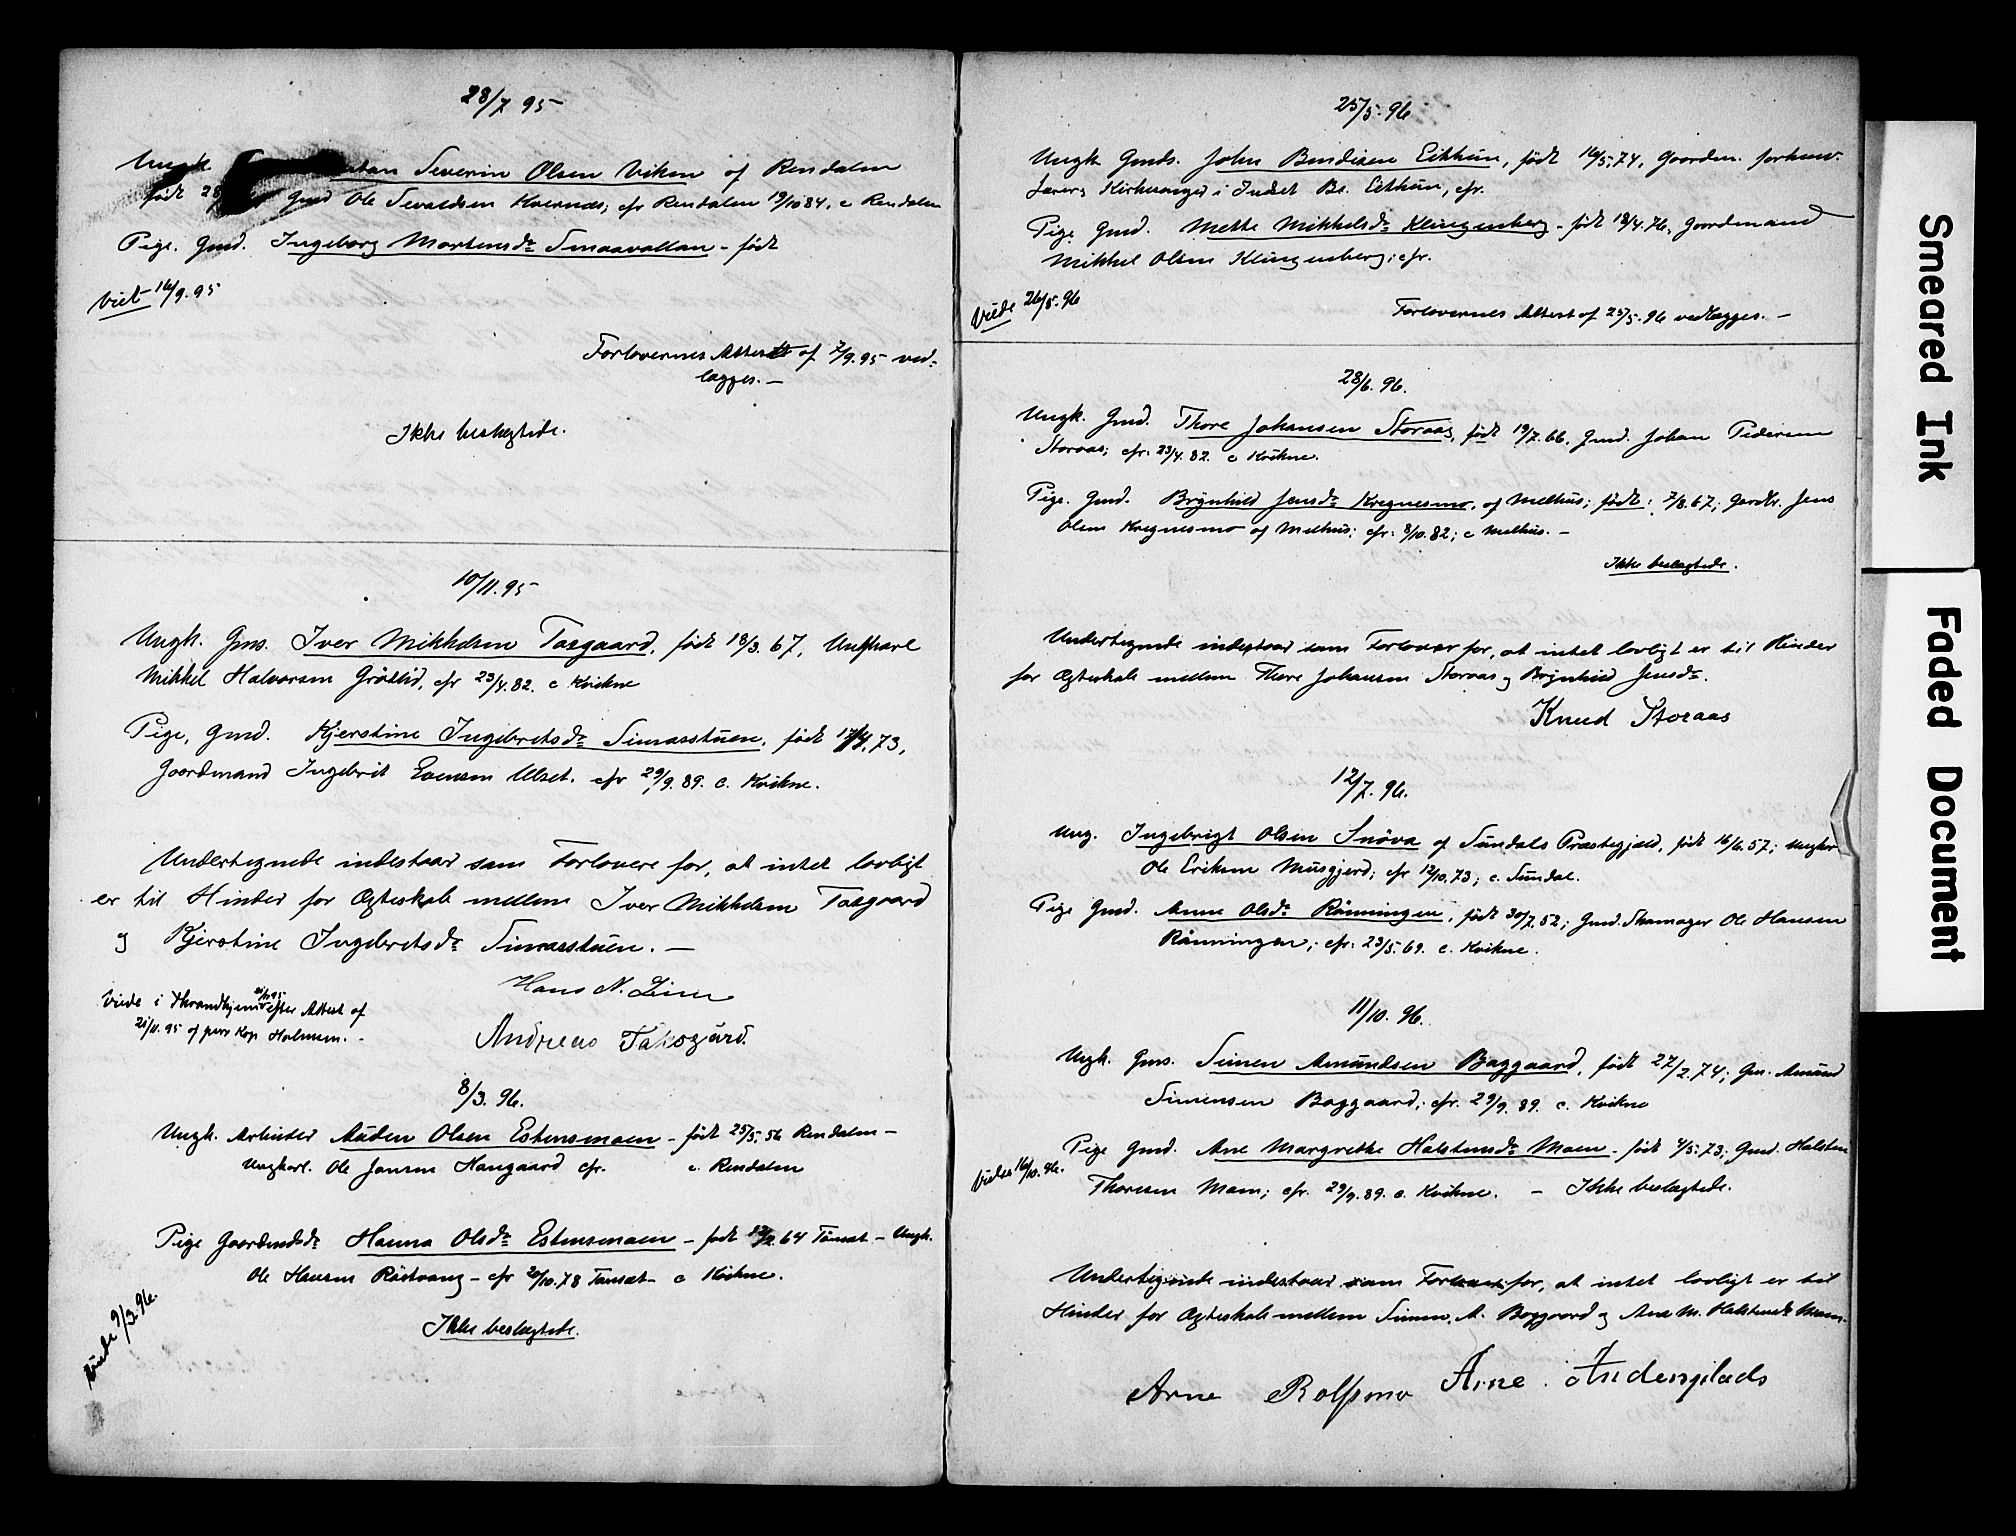 28/7 95
Ungk. Severin Olsen Viken af Rendalen
født Gmd Ole Sevaldsen Kvernæs; cfr Rendalen 19/10 84. c Rendalen
Pige. Gmd. Ingeborg Mortensdr Smaavollan - født
Viet 16/9.95
Forlovernes Attest af 7/9.95 ved-
lægges. -
Ikke beslægtede.
10/11.95
Ungk. Gms. Iver Mikkelsen Taxgaard, født 18/3.67, Ungkarl
Mikkel Halvorsen Grøtlid, cfr 23/4.82. c Kvikne
Pige, Gmd. Kjerstine Ingebretsdr Simaasstuen. født 73,
Gaardmand Ingebrit Evensen Ulset. cfr 29/9.89. c. Kvikne.
Undertegnede indestaar som Forlovere for, at intet lovligt
er til Hinder for Ægteskab mellem Iver Mikkelsen Taxgaard
og Kjerstine Ingebretsdr Simaasstuen. -
Hans N.
Viede i Throndhjem efter Attest af
21/11.95 af pers Kap Halvorsen. -
Andreas Taksgård.
8/3. 96.
Ungk. Arbeider Auden Olsen Estensmoen - født 25/5.56 Rendalen -
Ungkarl. Ole Jonsen Haugaard cfr. c. Rendalen
Pige Gaardmdsdr Hanna Olsdr Estensmoen - født 64 Tønset - Ungk.
Ole Hansen Røstvang - cfr 20/10.78 Tønset - c Kvikne.
Viede 9/3.96.
Ikke beslægtede.
25/5.96
Ungk Gmds. John Bendixen Eithun, født 16/5.74, Gaardm. forhenv.
Lærer, Kirkesanger i Indset Bs. Eithun, cfr.
Pige Gmd. Mette Mikkelsdr Klingenberg - født 18/4.76, Gaardmand
Mikkel Olsen Klingenberg; cfr.
Viede 26/5.96
Forlovernes Attest af 25/5.96 vedlægges. -
28/6. 96.
Ungk. Gmd. Thore Johansen Storaas, født 19/7.66. Gmd. Johan Pedersen
Storaas; cfr. 23/4.82. c Kvikne.
Pige. Gmd. Brynhild Jensdr Kregnesmo, af Melhus; født: 7/8.67; Gardbr. Jens
Olsen Kregnesmo af Melhus; cfr: 8/10.82; c Melhus. -
Ikke beslægtede.
Undertegnede indestaar som Forlover for, at intet lovligt er til Hinder
for Ægteskab mellem Thore Johansen Storaas og Brynhild Jensdr.
Knud Storaas
12/7. 96.
Ung. Ingebrigt Olsen Snøva af Sundals Præstegjæld, født 16/6.57; Ungkar
Ole Eriksen Musgjerd; cfr 12/10.73; c. Sundal.
Pige Gmd. Anne Olsdr Rønningen, født 30/7.52; Gmd. Skomager Ole Hansen
Rønningen; cfr: 23/5.69. c. Kvikne.
11/10. 96.
Ungk. Gms. Simen Amundsen Baggaard, født 27/2.74; Gm. Amund
Simensen Baggaard; cfr. 29/9.89. c. Kvikne
Pige Gmd. Ane Margrethe Halstensdr Moen - født 4/5.73; Gmd. Halsten
Viede 16/10.96.
Thoresen Moen; cfr. 29/9.89. c. Kvikne. - Ikke beslægtede.
Undertegnede indestaar som Forlover for, at intet lovligt er til
Hinder for Ægteskab mellem Simen A. Baggaard og Ane M. Halstensdr Moen.
Arne Rolfsmo Arne Andersgilads
Smeared Ink
Faded Document